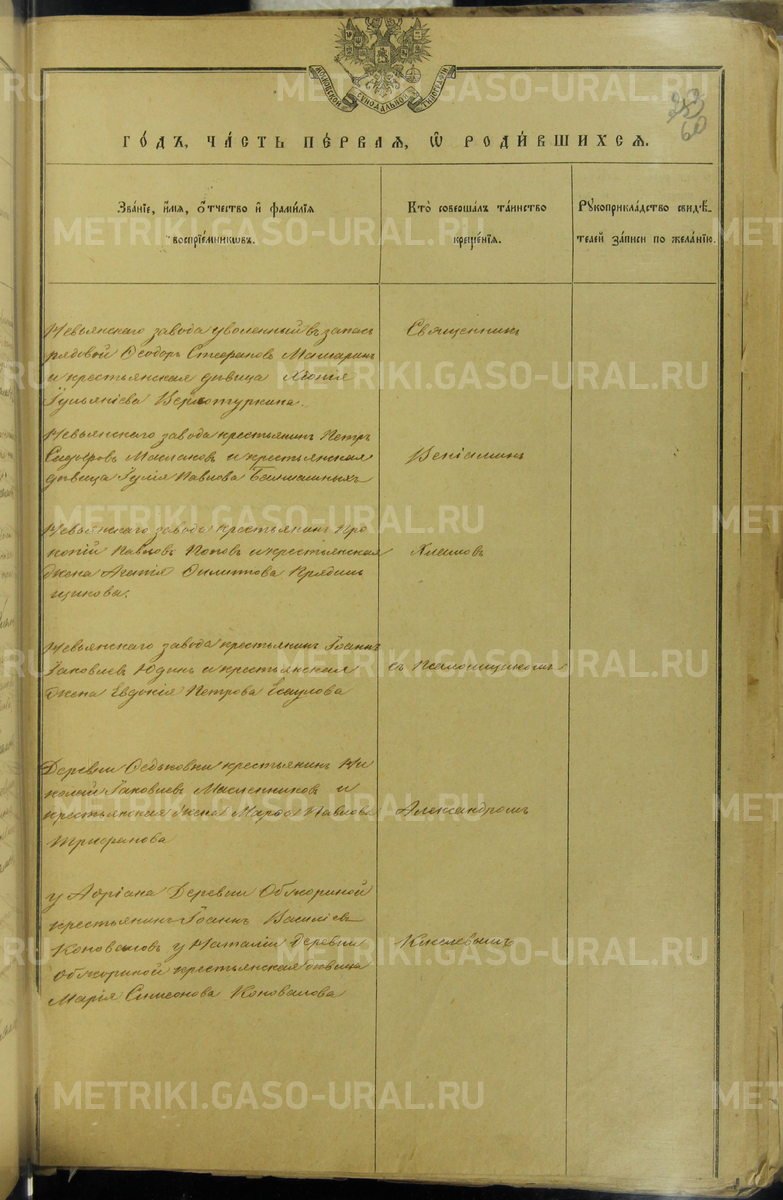 МОСКОВСКОЙ СѴНОДАЛЬНОЙ ТИПОГРАФІИ
253
60
ГО́ДЪ, ЧА́СТЬ ПЕ́РВАЯ, Ѡ҆ РОДИ́ВШИХСЯ.
Зва́нїе, и҆́мя, о҆́тчество и҆ фами́лїя
воспрїе́мникѡвъ.
Кто̀ соверша́лъ та́инство
креще́нїя.
Рꙋкоприкла́дство свидѣ́-
телей за́писи по жела́нїю.
Невьянскаго завода уволенный въ запас
рядовой Ѳеодоръ Стефановъ Мамарин
и крестьянская дѣвица
Верхотуркина.
Священник
Невьянскаго завода крестьянинъ Петръ
Сидоровъ Маслаковъ и крестьянская
дѣвица Іулія Павлова
Веніаминъ
Невьянскаго завода крестьянинъ Про
копій Павловъ Поповъ и крестьянская
жена Агапія Филиппова Прядиль
щикова.
Невьянскаго завода крестьянинъ Іоаннъ
Іаковлевъ Юдинъ и крестьянская
жена Евдокія Петрова Есаулова
съ Псаломщикомъ
Деревни Ѳедьковки крестьянинъ Ни
колай Іаковлевъ Масленниковъ и
крестьянская жена Марѳа Павлова
Трифанова
Александромъ
у Адріана Деревни Обжориной
крестьянинъ Іоаннъ Василіевъ
Коноваловъ у Наталіи Деревни
Обжориной крестьянская дѣвица
Марія Симеонова Коновалова
Киселевымъ
METRIKI.GASO-URAL.RU